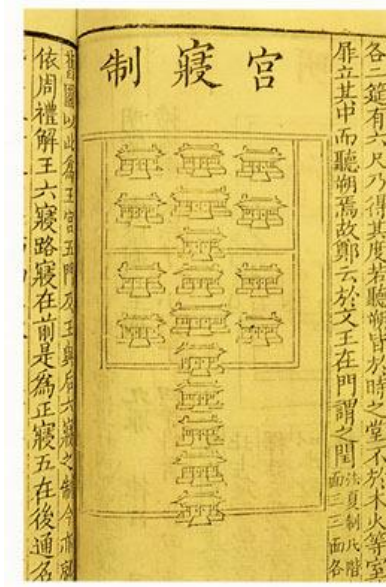 各二筵有六尺乃得其度若聽朔皆於時之堂不於木火等室
扉立其中而聽朔焉故鄭云於文王在門謂之閏
法夏制階
面三三面各
宮寢制
舊圖以此為王宮五門及王與后六寢之制今亦
依周禮解王六寢路寢在前是為正寢五在後通名